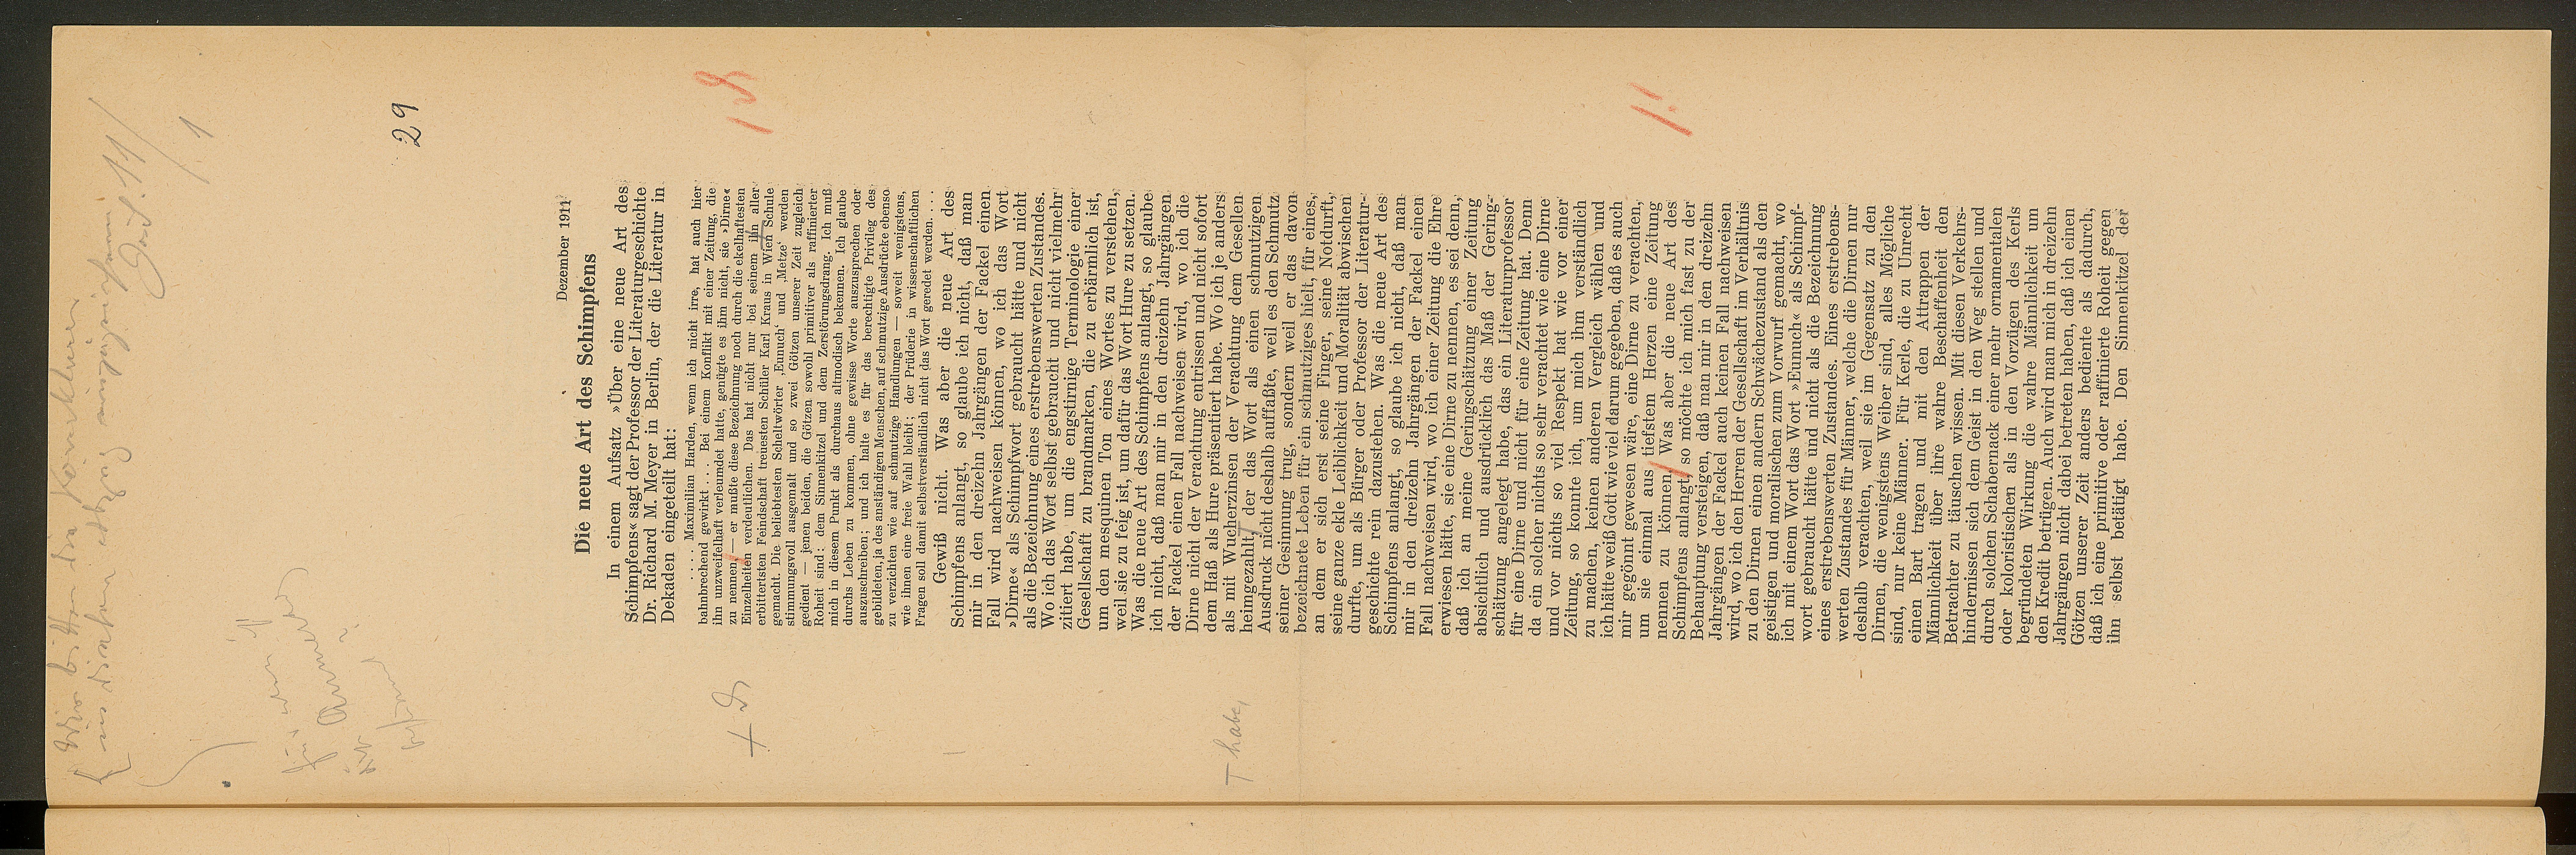 Wir bitten die Korrekturen
29
Dezember 1911
Die neue Art des Schimpfens
In einem Aufsatz »Über eine neue Art des
Schimpfens« sagt der Professor der Literaturgeschichte
Dr. Richard M. Meyer in Berlin, der die Literatur in
Dekaden eingeteilt hat:
. . . . Maximilian Harden, wenn ich nicht irre, hat auch hier
bahnbrechend gewirkt . . . Bei einem Konflikt mit einer Zeitung, die
ihn unzweifelhaft verleumdet hatte, genügte es ihm nicht, sie »Dirne«
zu nennen — er mußte diese Bezeichnung noch durch die ekelhaftesten
Einzelheiten verdeutlichen. Das hat nicht nur bei seinem ihn aller-
erbittertsten Feindschaft treuesten Schüler Karl Kraus in Wien Schule
gemacht. Die beliebtesten Scheltwörter ‚Eunuch‘ und ‚Metze‘ werden
stimmungsvoll ausgemalt und so zwei Götzen unserer Zeit zugleich
gedient — jenen beiden, die Götzen sowohl primitiver als raffinierter
Roheit sind: dem Sinnenkitzel und dem Zerstörungsdrang. Ich muß
mich in diesem Punkt als durchaus altmodisch bekennen. Ich glaube
durchs Leben zu kommen, ohne gewisse Worte auszusprechen oder
auszuschreiben; und ich halte es für das berechtigte Privileg des
gebildeten, ja des anständigen Menschen, auf schmutzige Ausdrücke ebenso
zu verzichten wie auf schmutzige Handlungen — soweit wenigstens,
wie ihnen eine freie Wahl bleibt; der Prüderie in wissenschaftlichen
Fragen soll damit selbstverständlich nicht das Wort geredet werden. . . .
Gewiß nicht. Was aber die neue Art des
Schimpfens anlangt, so glaube ich nicht, daß man
mir in den dreizehn Jahrgängen der Fackel einen
Fall wird nachweisen können, wo ich das Wort
»Dirne« als Schimpfwort gebraucht hätte und nicht
als die Bezeichnung eines erstrebenswerten Zustandes.
Wo ich das Wort selbst gebraucht und nicht vielmehr
zitiert habe, um die engstirnige Terminologie einer
Gesellschaft zu brandmarken, die zu erbärmlich ist,
um den mesquinen Ton eines Wortes zu verstehen,
weil sie zu feig ist, um dafür das Wort Hure zu setzen.
Was die neue Art des Schimpfens anlangt, so glaube
ich nicht, daß man mir in den dreizehn Jahrgängen
der Fackel einen Fall nachweisen wird, wo ich die
Dirne nicht der Verachtung entrissen und nicht sofort
dem Haß als Hure präsentiert habe. Wo ich je anders
als mit Wucherzinsen der Verachtung dem Gesellen
heimgezahlt, der das Wort als einen schmutzigen
T habe,
Ausdruck nicht deshalb auffaßte, weil es den Schmutz
seiner Gesinnung trug, sondern weil er das davon
bezeichnete Leben für ein schmutziges hielt, für eines,
an dem er sich erst seine Finger, seine Notdurft,
seine ganze ekle Leiblichkeit und Moralität abwischen
durfte, um als Bürger oder Professor der Literatur-
geschichte rein dazustehen. Was die neue Art des
Schimpfens anlangt, so glaube ich nicht, daß man
mir in den dreizehn Jahrgängen der Fackel einen
Fall nachweisen wird, wo ich einer Zeitung die Ehre
erwiesen hätte, sie eine Dirne zu nennen, es sei denn,
daß ich an meine Geringschätzung einer Zeitung
absichtlich und ausdrücklich das Maß der Gering-
schätzung angelegt habe, das ein Literaturprofessor
für eine Dirne und nicht für eine Zeitung hat. Denn
da ein solcher nichts so sehr verachtet wie eine Dirne
und vor nichts so viel Respekt hat wie vor einer
Zeitung, so konnte ich, um mich ihm verständlich
zu machen, keinen anderen Vergleich wählen und
ich hätte weiß Gott wie viel darum gegeben, daß es auch
mir gegönnt gewesen wäre, eine Dirne zu verachten,
um sie einmal aus tiefstem Herzen eine Zeitung
nennen zu können. Was aber die neue Art des
Schimpfens anlangt, so möchte ich mich fast zu der
Behauptung versteigen, daß man mir in den dreizehn
Jahrgängen der Fackel auch keinen Fall nachweisen
wird, wo ich den Herren der Gesellschaft im Verhältnis
zu den Dirnen einen andern Schwächezustand als den
geistigen und moralischen zum Vorwurf gemacht, wo
ich mit einem Wort das Wort »Eunuch« als Schimpf-
wort gebraucht hätte und nicht als die Bezeichnung
eines erstrebenswerten Zustandes. Eines erstrebens-
werten Zustandes für Männer, welche die Dirnen nur
deshalb verachten, weil sie im Gegensatz zu den
Dirnen, die wenigstens Weiber sind, alles Mögliche
sind, nur keine Männer. Für Kerle, die zu Unrecht
einen Bart tragen und mit den Attrappen der
Männlichkeit über ihre wahre Beschaffenheit den
Betrachter zu täuschen wissen. Mit diesen Verkehrs-
hindernissen sich dem Geist in den Weg stellen und
durch solchen Schabernack einer mehr ornamentalen
oder koloristischen als in den Vorzügen des Kerls
begründeten Wirkung die wahre Männlichkeit um
den Kredit betrügen. Auch wird man mich in dreizehn
Jahrgängen nicht dabei betreten haben, daß ich einen
Götzen unserer Zeit anders bediente als dadurch,
daß ich eine primitive oder raffinierte Roheit gegen
ihn selbst betätigt habe. Den Sinnenkitzel der